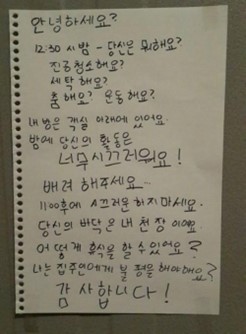 안녕하세요?
12:30 시밤 - 당신은 뭐해요?
진공청소해요?
세탁해요?
춤해요? 운동해요?
내방은 객실 아래에 있어요.
밤에 당신의 활동은
너무시끄러워요!
배려 해주세요.
11:00후에 시끄러운 하지마세요.
당신의 바닥은 내 천장 이에요.
어떻게 휴식을 할 수 있어요?
나는 집주인에게 불평을 해야해요?
감사합니다!